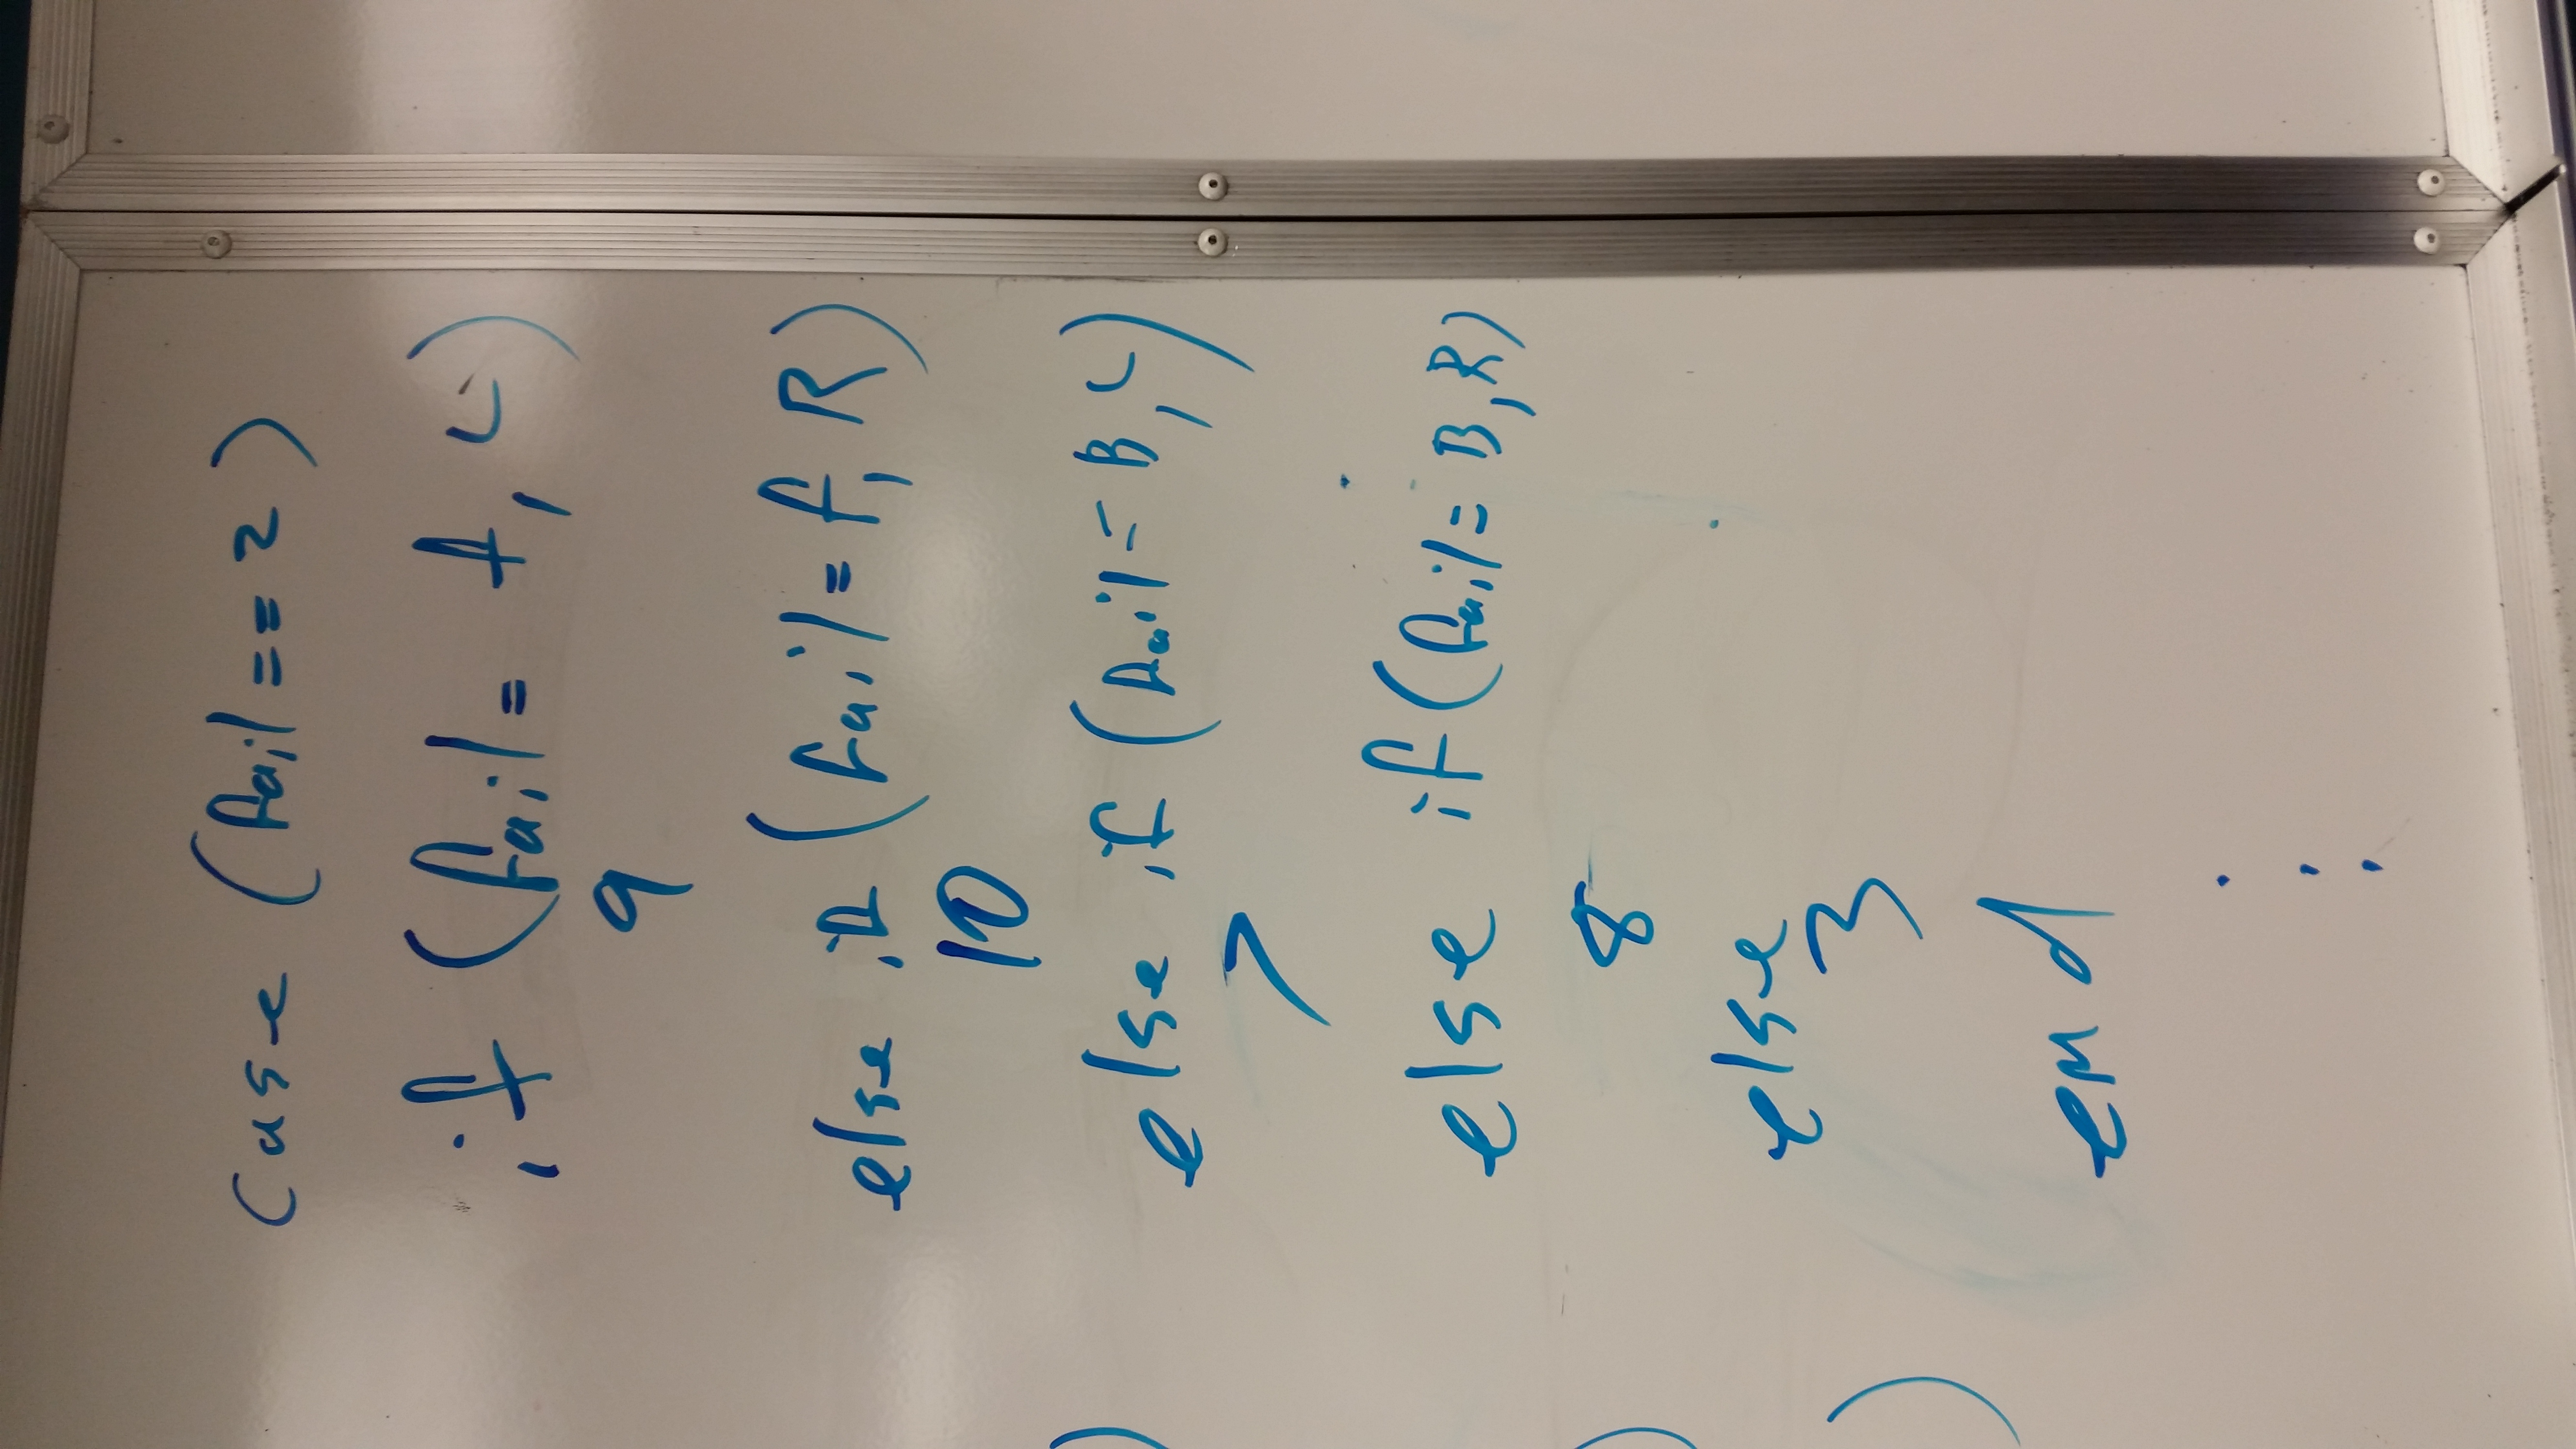 case (fail == 2)
if (fail = f, L)
9
else if (fail = f, R)
10
else if (fail = B, L)
7
else if (fail = B, R)
8
else
3
end